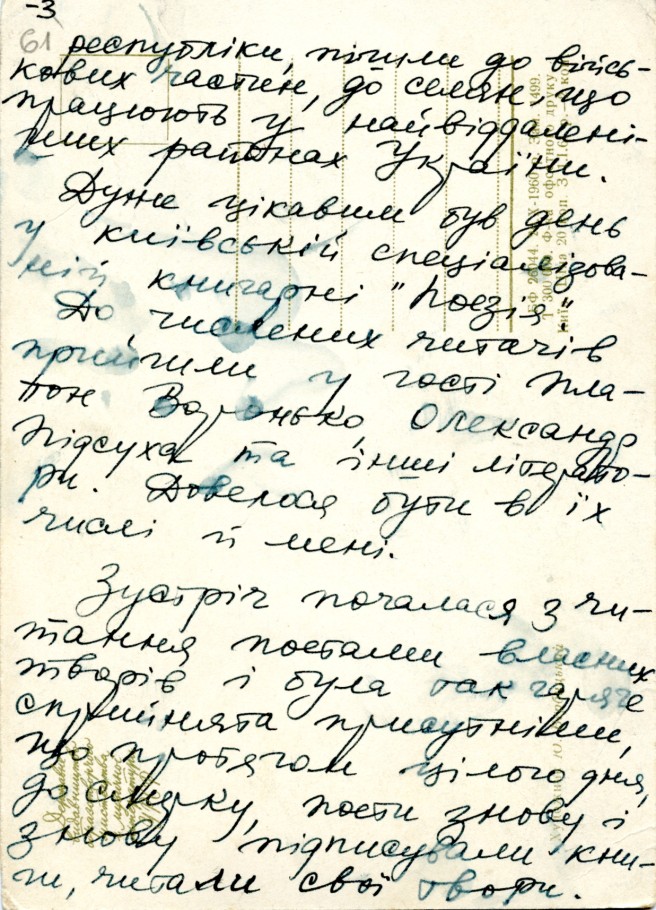 -3
61
республіки, пішли до військ-
кових частин, до селян, що
працюють у найвіддалені-
ших районах України.
Дуже цікавим був день
у київській спеціалізова-
ній книгарні "Поезія".
До численних читачів
прийшли у гості Пла-
тон Воронько, Олександр
Підсуха та інші літерато-
ри. Довелося бути в їх
числі й мені.
Зустріч почалася з чи-
тання поетами власних
творів і була так гаряче
сприйнята присутніми,
що протягом цілого дня,
до смерку, поети знову і
знову підписували кни-
ги, читали свої твори.